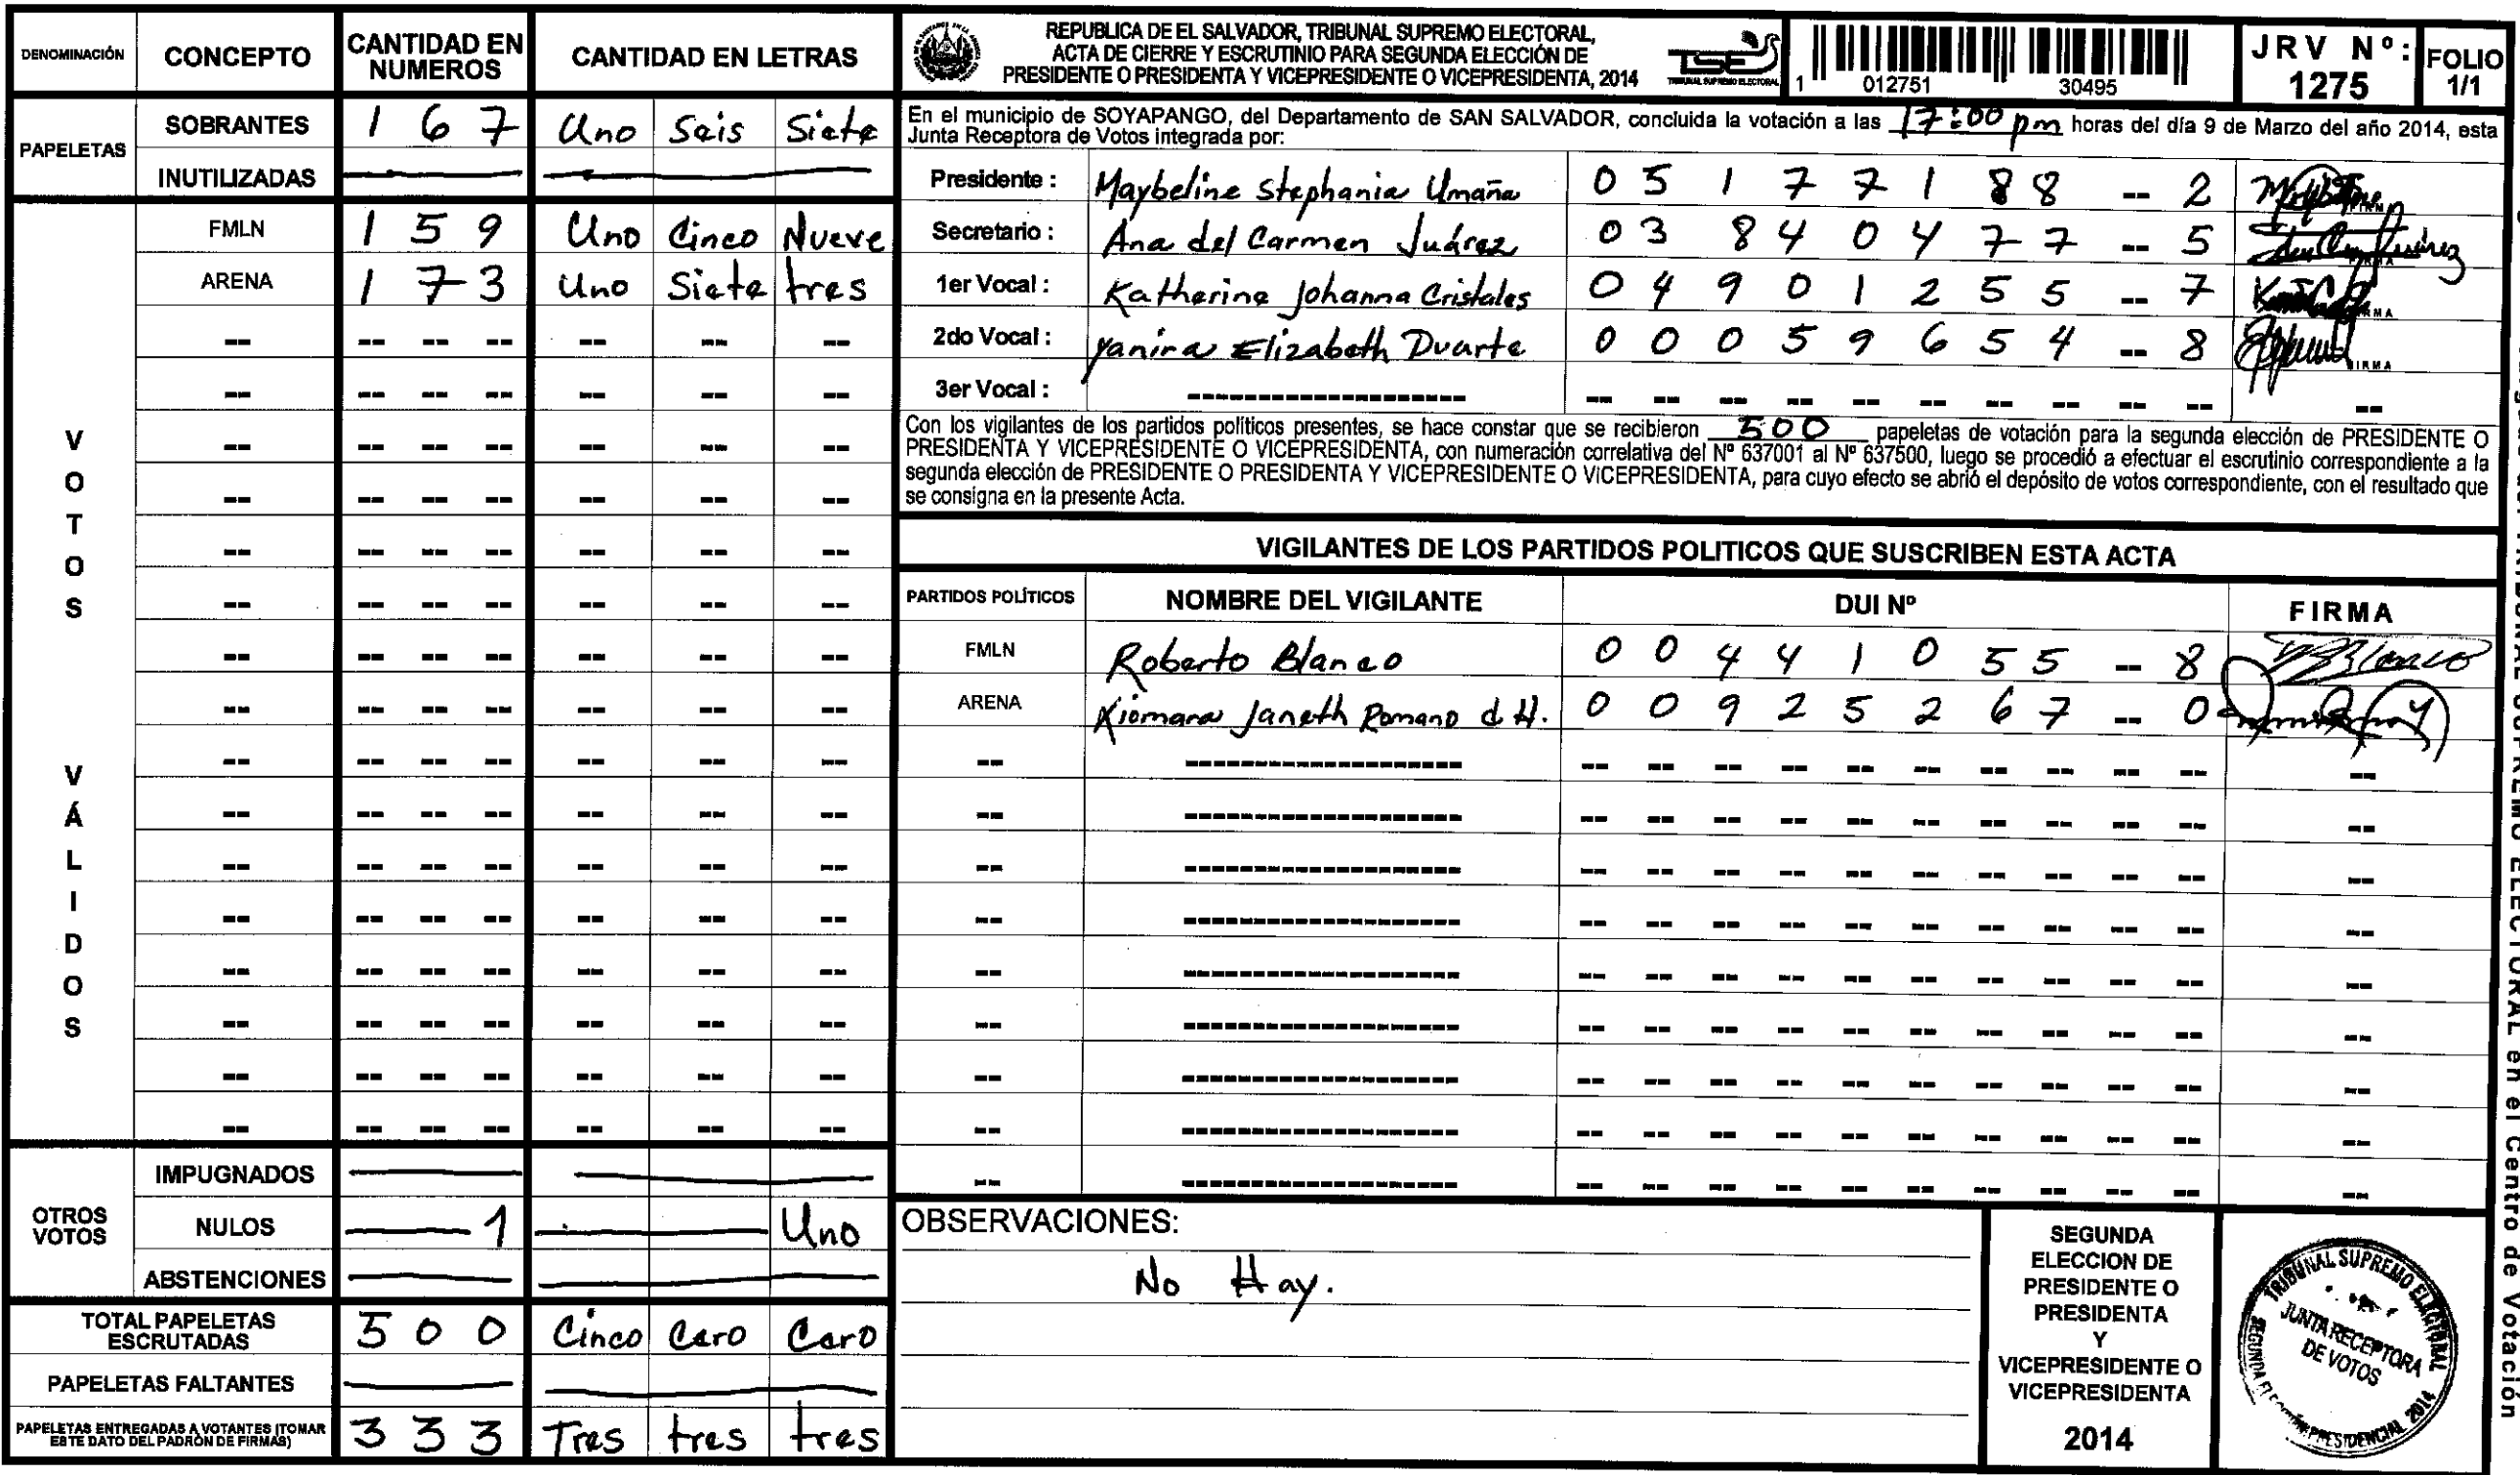 DENOMINACIÓN CONCEPTO CANTIDAD EN NUMEROS CANTIDAD EN LETRAS
PAPELETAS
SOBRANTES 1 6 7 Uno Seis Siete
INUTILIZADAS
VOTOS VÁLIDOS
FMLN 1 5 9 Uno Cinco Nueve
ARENA 1 7 3 Uno Siete tres
OTROS VOTOS
IMPUGNADOS
NULOS 1 Uno
ABSTENCIONES
TOTAL PAPELETAS ESCRUTADAS 5 0 0 Cinco Cero Cero
PAPELETAS FALTANTES
PAPELETAS ENTREGADAS A VOTANTES (TOMAR ESTE DATO DEL PADRÓN DE FIRMAS) 3 3 3 Tres tres tres
REPUBLICA DE EL SALVADOR, TRIBUNAL SUPREMO ELECTORAL,
ACTA DE CIERRE Y ESCRUTINIO PARA SEGUNDA ELECCIÓN DE
PRESIDENTE O PRESIDENTA Y VICEPRESIDENTE O VICEPRESIDENTA, 2014
TSE
TRIBUNAL SUPREMO ELECTORAL
1 012751 30495
JRV Nº: 1275
FOLIO 1/1
En el municipio de SOYAPANGO, del Departamento de SAN SALVADOR, concluida la votación a las 17:00 pm horas del día 9 de Marzo del año 2014, esta
Junta Receptora de Votos integrada por:
Presidente : Maybeline Stephania Umaña 0 5 1 7 7 1 8 8 -- 2 FIRMA
Secretario : Ana del Carmen Juárez 0 3 8 4 0 4 7 7 -- 5 FIRMA
1er Vocal : Katherine Johanna Cristales 0 4 9 0 1 2 5 5 -- 7 FIRMA
2do Vocal : Yanira Elizabeth Duarte 0 0 0 5 9 6 5 4 -- 8 FIRMA
3er Vocal :
Con los vigilantes de los partidos políticos presentes, se hace constar que se recibieron 500 papeletas de votación para la segunda elección de PRESIDENTE O
PRESIDENTA Y VICEPRESIDENTE O VICEPRESIDENTA, con numeración correlativa del Nº 637001 al Nº 637500, luego se procedió a efectuar el escrutinio correspondiente a la
segunda elección de PRESIDENTE O PRESIDENTA Y VICEPRESIDENTE O VICEPRESIDENTA, para cuyo efecto se abrió el depósito de votos correspondiente, con el resultado que
se consigna en la presente Acta.
VIGILANTES DE LOS PARTIDOS POLITICOS QUE SUSCRIBEN ESTA ACTA
PARTIDOS POLÍTICOS NOMBRE DEL VIGILANTE DUI Nº FIRMA
FMLN Roberto Blanco 0 0 4 4 1 0 5 5 -- 8
ARENA Xiomara Janeth Romano d H. 0 0 9 2 5 2 6 7 -- 0
OBSERVACIONES:
No Hay.
SEGUNDA
ELECCION DE
PRESIDENTE O
PRESIDENTA
Y
VICEPRESIDENTE O
VICEPRESIDENTA
2014
TRIBUNAL SUPREMO ELECTORAL
JUNTA RECEPTORA
DE VOTOS
PRESIDENCIAL 2014
TRIBUNAL SUPREMO ELECTORAL en el Centro de Votación